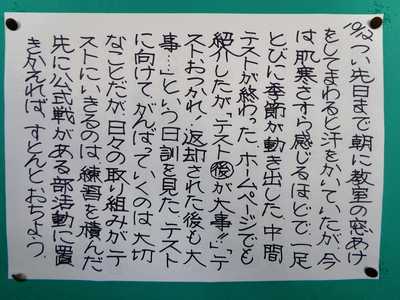 10/12 つい先日まで、朝に教室の窓あけ
をしてまわると汗をかいていたが、今
は肌寒さすら感じるほどで、一足
とびに季節が動き出した。中間
テストが終わった。ホームページでも
紹介したが、「テスト後が大事!!」「テ
ストおつかれ!返却された後も大
事…」という日訓を見た。テスト
に向けてがんばっていくのは大切
なことだが、日々の取り組みがテ
ストにいきるのは、練習を積んだ
先に公式戦がある部活動に置
きかえれば、すとんとおちよう。